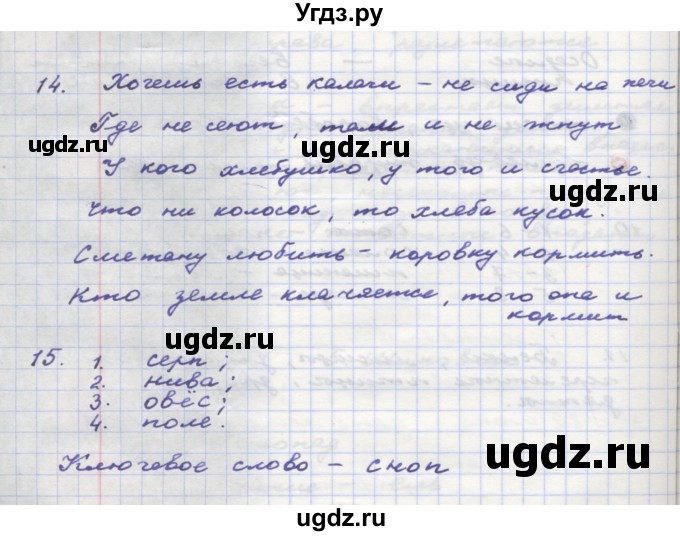 Угдз.ру
14. Хочешь есть калачи – не сиди на печи
Где не сеют, там и не жнут
ugdz.ru ugdz.ru
У кого хлебушко, у того и счастье.
ugdz.ru
Что ни колосок, то хлеба кусок.
Сметану любить – коровку кормить.
Кто земле кланяется, того она и
кормит
ugdz.ru ugdz.ru
15. 1. серп;
2. нива;
3. овёс;
4. поле.
ugdz.ru
Ключевое слово – сноп
ugdz.ru
ugdz.ru